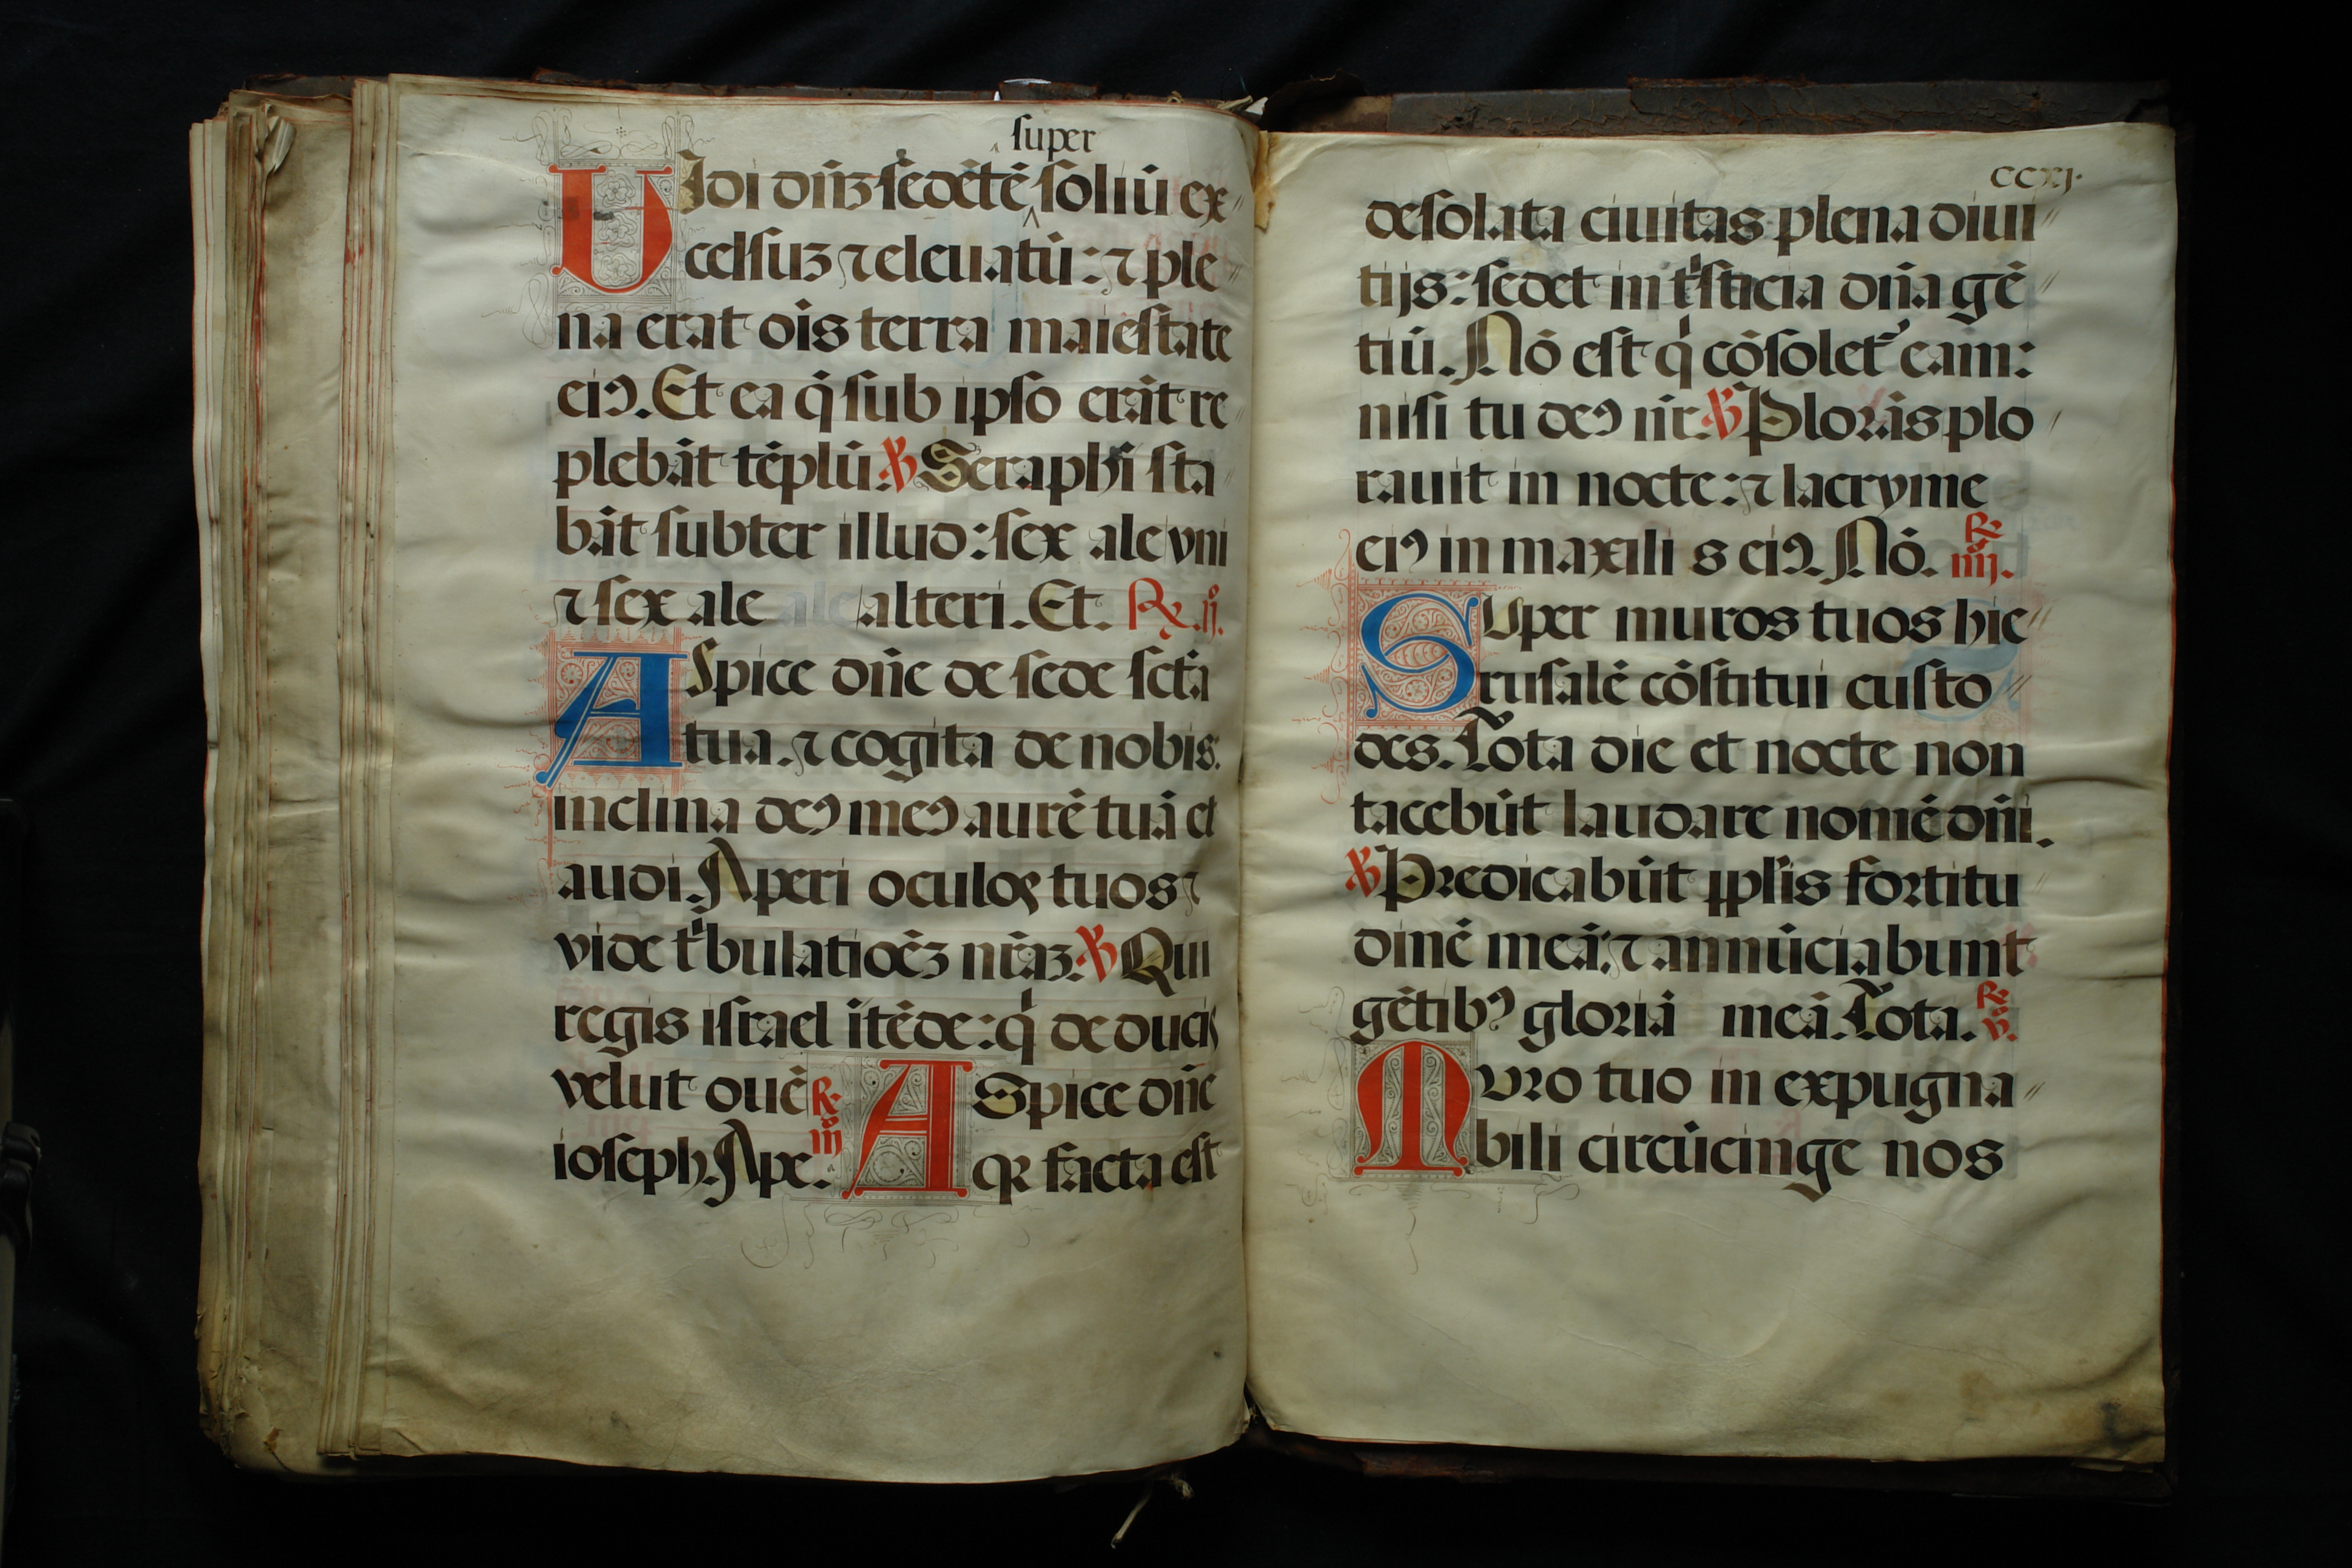 super
UJdi dn̄ꝫ sedētē soliū ex
celsuꝫ ⁊ eleuatū: ⁊ ple
na erat oīs terra maiestate
eiꝰ. Et ea q̄ sub ipso erāt re
plebāt tēplū. ℣ Seraphī sta
bāt subter illud: sex ale vni
⁊ sex ale alteri. Et. ℞. ij.
ASpice dn̄e de sede sctā
tua. ⁊ cogita de nobis:
inclina deꝰ meꝰ aurē tuā et
audi. Aperi oculos tuos ⁊
vide tͥbulatiōeꝫ nr̄aꝫ. ℣ Qui
regis israel ītēde: qͥ deducis
velut ouē ℞.
ioseph. Ape. iij
ASpice dn̄e
qꝛ facta est
ccxj.
desolata ciuitas plena diui
tijs: sedet in tͥsticia dn̄a gē
tiū. Nō est qͥ cōsolet᷑ eam:
nisi tu deꝰ nr̄. ℣ Plorās plo
rauit in nocte: ⁊ lacryme
eiꝰ in maxilis eiꝰ. Nō. ℞. iiij.
SUper muros tuos hie
rusalē cōstitui custo
des. Tota die et nocte non
tacebūt laudare nomē dn̄i.
℣ Predicabūt pplīs fortitu
dinē meā: ⁊ annūciabunt
gētibꝰ gloriā meā. Tota. ℞. v.
MVro tuo inexpugna
bili circūcinge nos